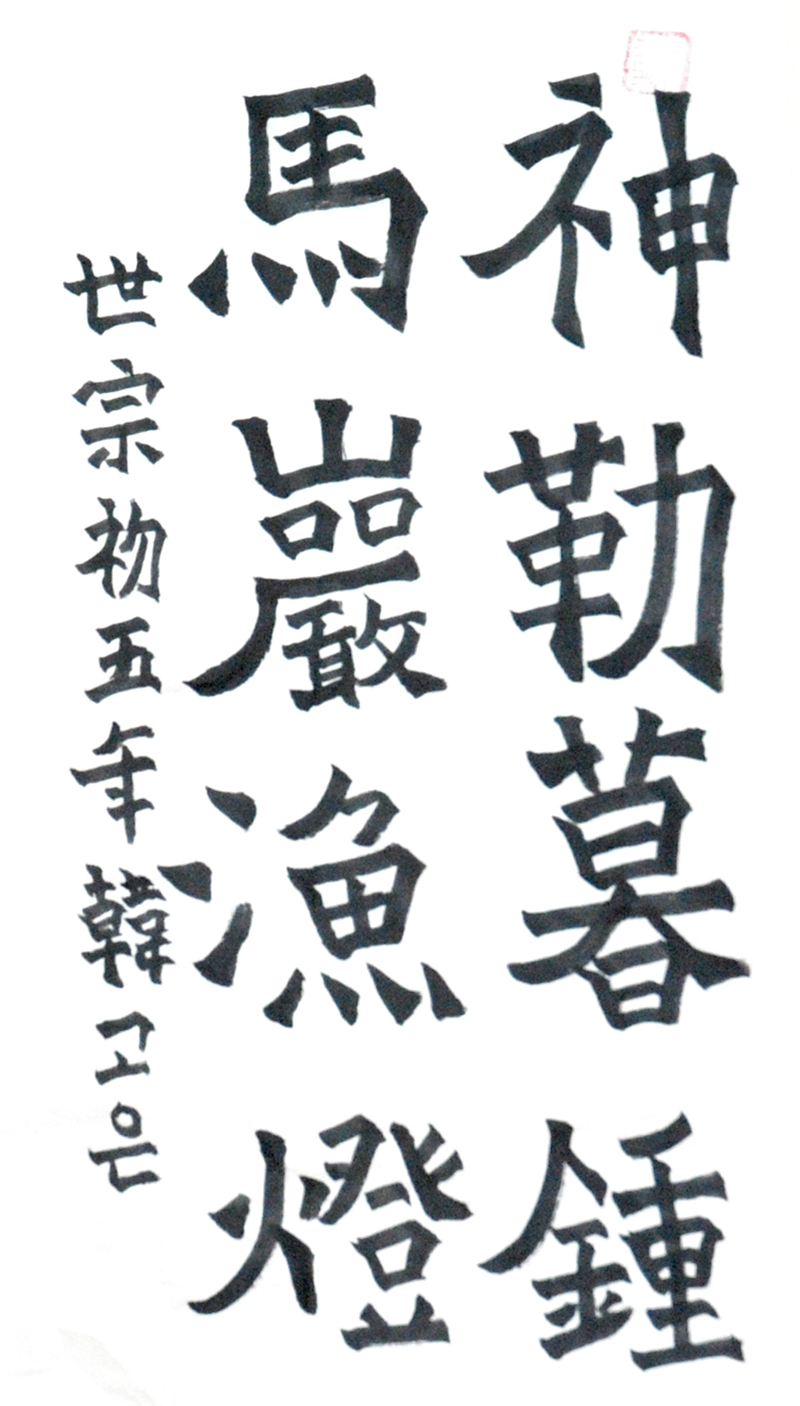 神勒暮鍾
馬巖漁燈
世宗初五年韓고은